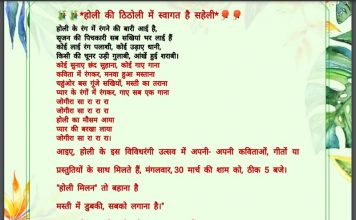 *होली की ठिठोली में स्वागत है सहेली*
होली के रंग में रंगने की बारी आई है,
सृजन की पिचकारी सब सखियां भर लाई हैं
कोई लाई रंग पलाशी, कोई उड़ाए धानी,
किसी की चूनर उड़ी गुलाबी, आंखें हुई शराबी।
कोई सुनाए छंद सुहाना, कोई गाए गाना
कविता में रंगकर, मनवा हुआ मस्ताना
चहुंओर बस गूंजे सखियों, मस्ती का तराना
प्यार के रंगों में रंगकर, गाए सब एक गाना
जोगीरा सा रा रा रा
जोगीरा सा रा रा रा
होली का मौसम आया
प्यार की बरखा लाया
जोगीरा सा रा रा रा।
आइए, होली के इस विविधरंगी उत्सव में अपनी- अपनी कविताओं, गीतों या
प्रस्तुतियों के साथ मिलते हैं, मंगलवार, 30 मार्च की शाम को, ठीक 5 बजे।
"होली मिलन" तो बहाना है
मस्ती में डुबकी, सबको लगाना है।"